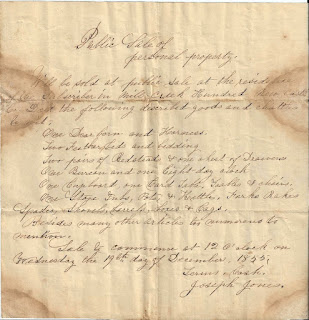 Public Sale of
personal property.
Will be sold at public sale at the residence
Subscriber in Mill Creek Hundred, New Castle
the following described goods and chattles
One Dearborn and Harness.
Two Featherbeds and bedding
Two pairs of Bedsteads & one chest of Drawers
One Bureau and one Eight day clock
One Cupboard, one Card Table, Tables & chairs,
One Stove Tubs, Pots, & Kettles, Forks Rakes
Spades Shovels, barrels, & Bags.
Besides many other articles too numerous to
mention.
Sale to commence at 12 O'clock on
Wednesday the 19th day of December, 1855,
Terms Cash.
Joseph Jones.